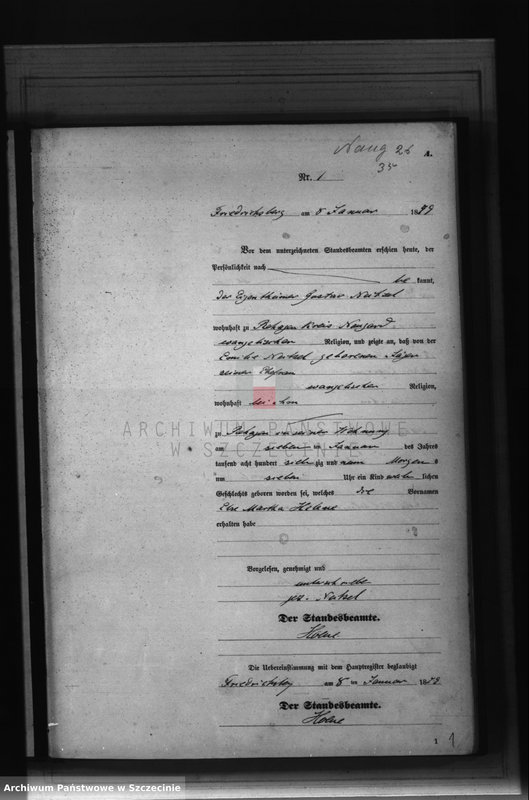 Naug 26
35
A.
Nr. 1
Friedrichsberg am 8 Januar 1879
Vor dem unterzeichneten Standesbeamten erschien heute, der
Persönlichkeit nach be kannt,
der Eigenthümer Gustav
wohnhaft zu Rehagen Kreis Naugard
evangelischer Religion, und zeigte an, daß von der
geborenen
seiner Ehefrau
evangelischer Religion,
wohnhaft bei ihm
zu Rehagen in seiner Wohnung
am sieben ten Januar des Jahres
tausend acht hundert sieb zig und neun Morgens
um sieben Uhr ein Kind weib lichen
Geschlechts geboren worden sei, welches die Vornamen
Martha Helene
erhalten habe
Vorgelesen, genehmigt und
unterschrieben
gez.
Der Standesbeamte.
Die Uebereinstimmung mit dem Hauptregister beglaubigt
Friedrichsberg am 8 ten Januar 1879
Der Standesbeamte.
1 1
ARCHIWUM PAŃSTWOWE
W SZCZECINIE
Archiwum Państwowe w Szczecinie